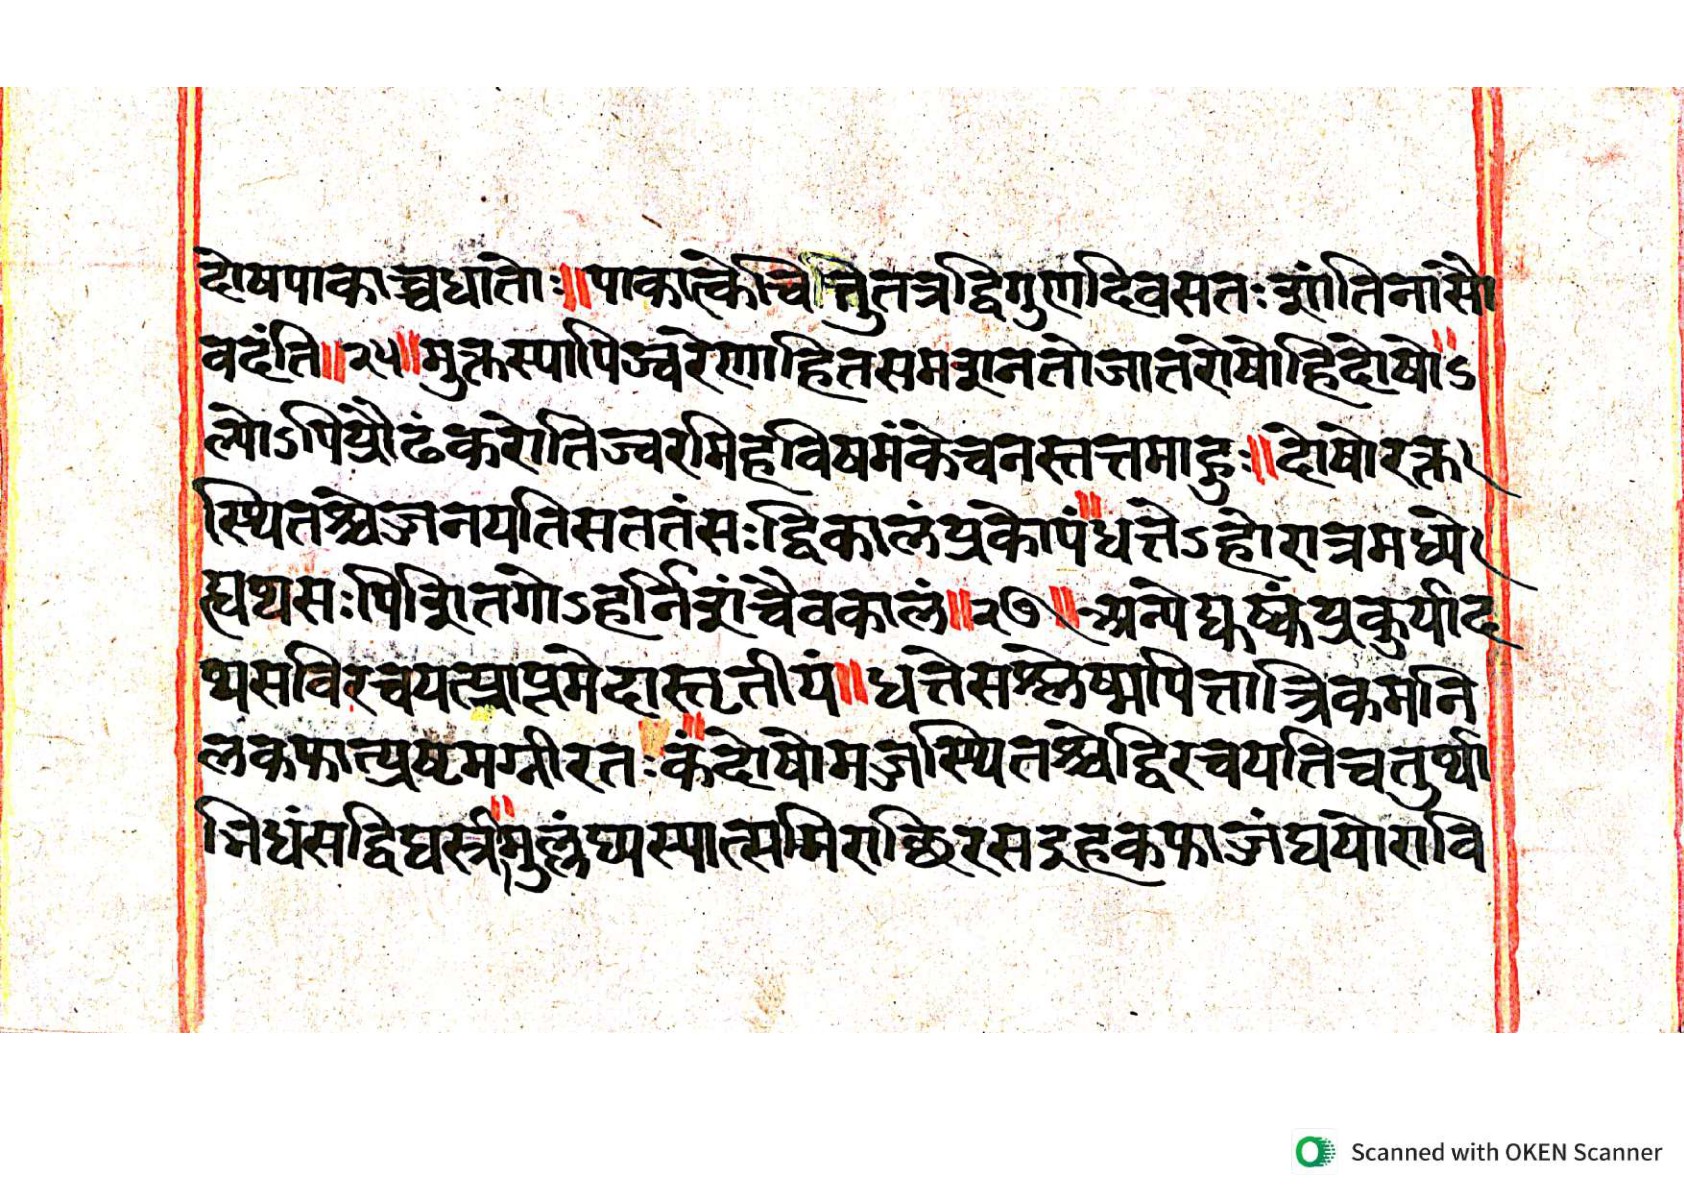 दोषपाकाच्चधातोः॥पाकात्केचित्तुतत्रद्विगुणदिवसतःशांतिनांसौ
वदंति॥२५॥मुक्तस्पापिज्वरेणाहितसमशनतोजातरोषोहिदोषो॥ऽ
ल्पोऽपिप्रौढंकरोतिज्वरमिहविषमंकेचनस्तत्तमाहुः॥दोषोरक्त
स्थितश्चेज्जनयतिसततंसःद्विकालंप्रकोपं॥धत्तेऽहोरात्रमध्ये
ह्यथसःपिशितगोऽहर्निशंचैवकालं॥२७॥अन्येद्युष्कंप्रकुर्याद
थसविरचयत्प्राप्तमेदास्तृतीयं॥धत्तेसश्लेष्मपित्तात्त्रिकमनि
लकफात्पृष्टमग्नीरतःकं॥दोषोमज्जस्थितश्चेद्विरचयतिचतुर्था
भिधंसद्विघस्त्रं॥मुल्लंघ्यस्पात्समिराच्छिरसइहकफाज्जंघयोरावि
Scanned with OKEN Scanner